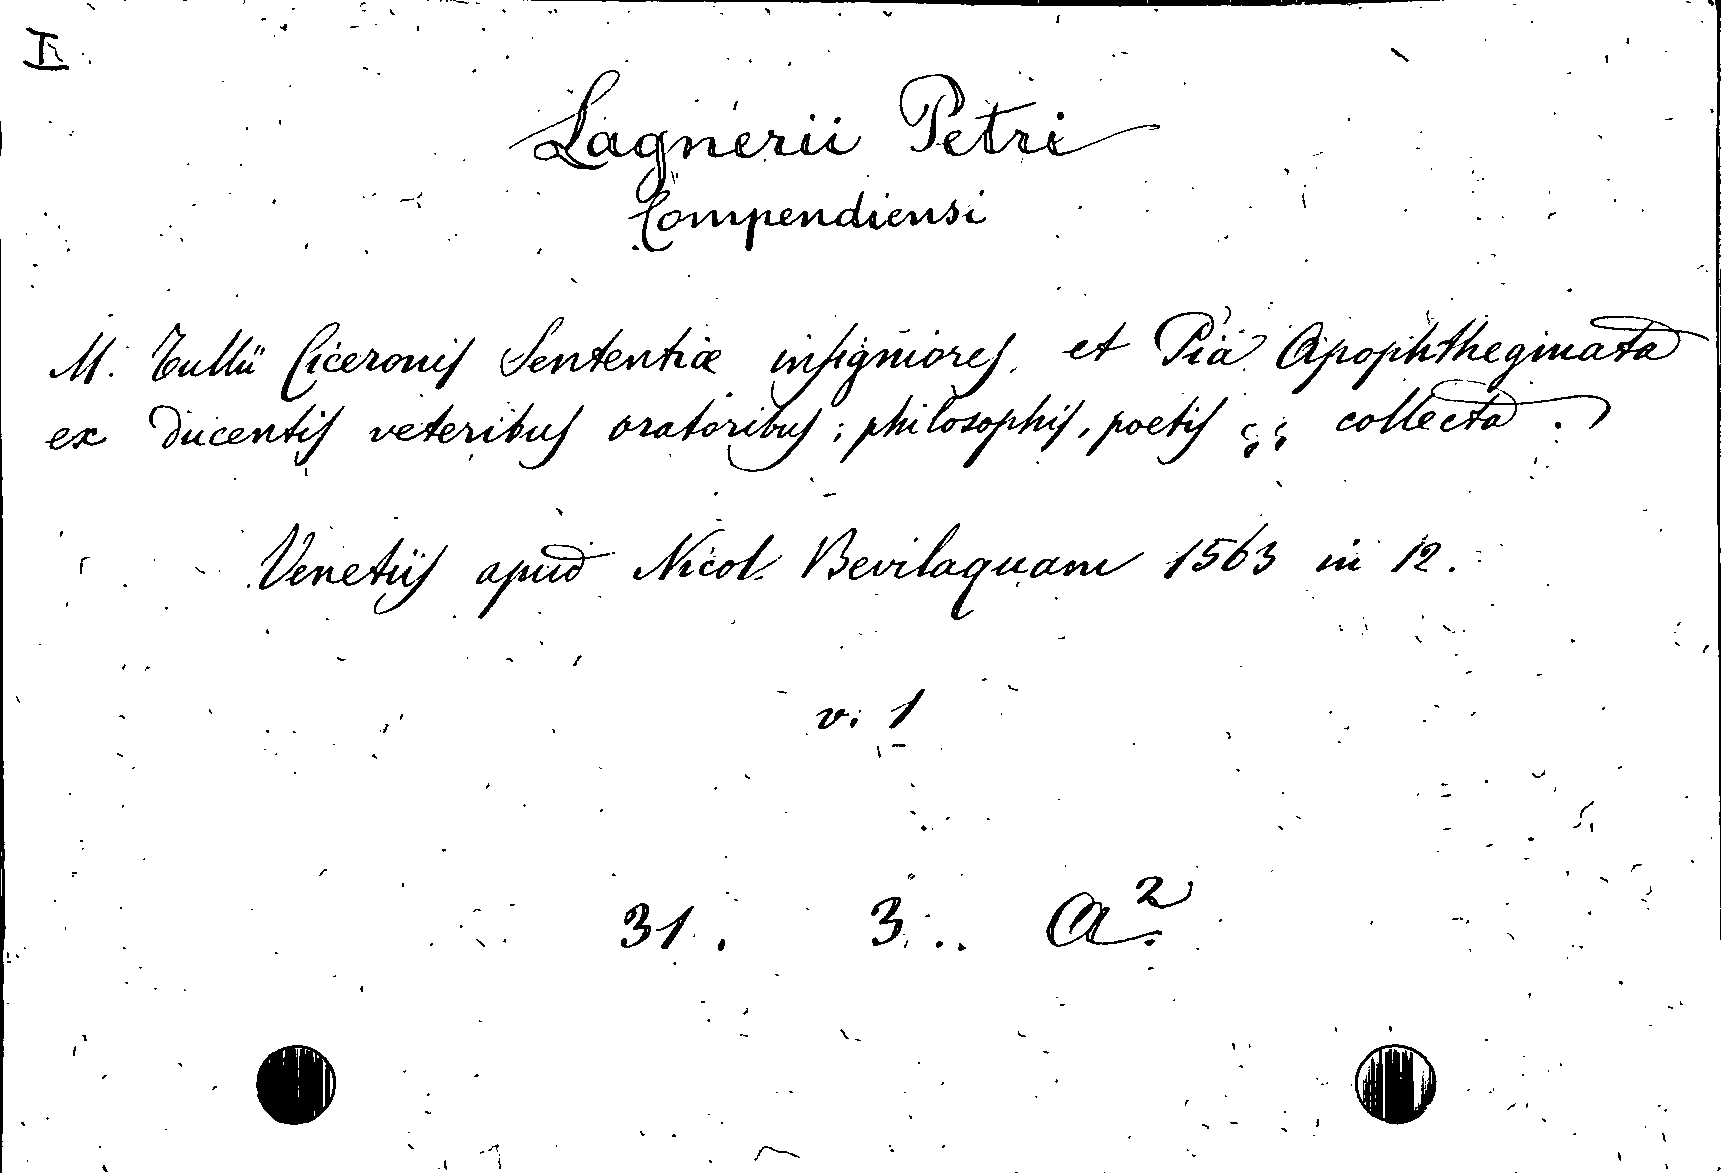 I
Lagnerii Petri
Compendiensi
M. Tullii Ciceronis Sententiæ insigniores, et Pia Apophthegmata
ex ducentis veteribus oratoribus; philosophis, poetis collecta.
Venetiis apud Nicol. Bevilaquam 1563 in 12.
v. 1
31. 3. a².